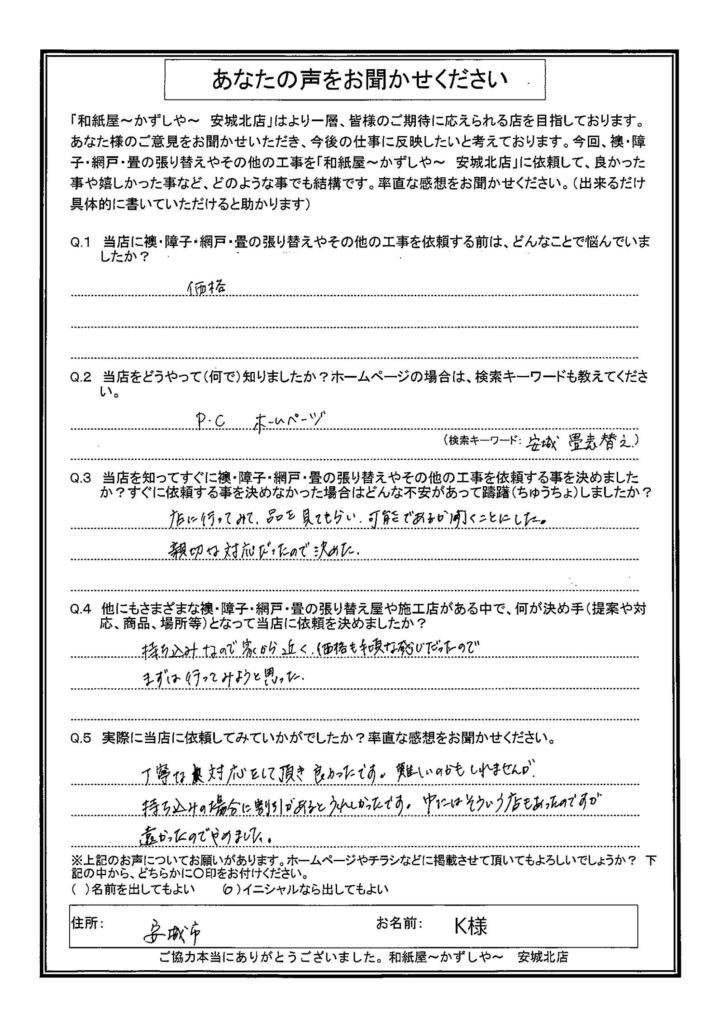 あなたの声をお聞かせください
「和紙屋～かずしや～　安城北店」はより一層、皆様のご期待に応えられる店を目指しております。
あなた様のご意見をお聞かせいただき、今後の仕事に反映したいと考えております。今回、襖・障
子・網戸・畳の張り替えやその他の工事を「和紙屋～かずしや～　安城北店」に依頼して、良かった
事や嬉しかった事など、どのような事でも結構です。率直な感想をお聞かせください。（出来るだけ
具体的に書いていただけると助かります）
Q.1　当店に襖・障子・網戸・畳の張り替えやその他の工事を依頼する前は、どんなことで悩んでいま
したか？
価格
Q.2　当店をどうやって（何で）知りましたか？ホームページの場合は、検索キーワードも教えてくださ
い。
P・C　ホームページ
（検索キーワード：安城　畳表替え）
Q.3　当店を知ってすぐに襖・障子・網戸・畳の張り替えやその他の工事を依頼する事を決めました
か？すぐに依頼する事を決めなかった場合はどんな不安があって躊躇（ちゅうちょ）しましたか？
店に行ってみて、品を見てもらい、可能であるか聞くことにした。
親切な対応だったので決めた。
Q.4　他にもさまざまな襖・障子・網戸・畳の張り替え屋や施工店がある中で、何が決め手（提案や対
応、商品、場所等）となって当店に依頼を決めましたか？
持ち込みなので家から近く、価格も手頃な感じだったので
まずは行ってみようと思った。
Q.5　実際に当店に依頼してみていかがでしたか？率直な感想をお聞かせください。
丁寧な対応をして頂き良かったです。難しいのかもしれませんが、
持ち込みの場合に割引があるとうれしかったです。中にはそういう店もあったのですが
遠かったのでやめました。
※上記のお声についてお願いがあります。ホームページやチラシなどに掲載させて頂いてもよろしいでしょうか？　下
記の中から、どちらかに〇印をお付けください。
（ ）名前を出してもよい　（○）イニシャルなら出してもよい
住所：　安城市　お名前：　K様
ご協力本当にありがとうございました。和紙屋～かずしや～　安城北店